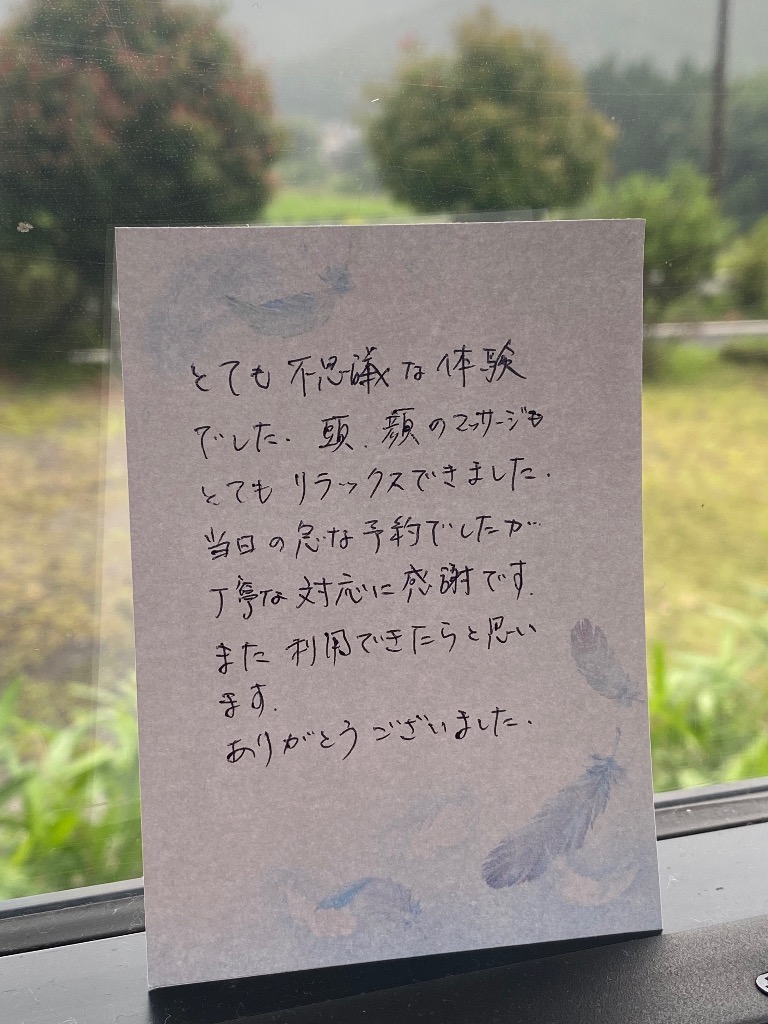 とても不思議な体験
でした. 頭、顔のマッサージも
とてもリラックスできました.
当日の急な予約でしたが
丁寧な対応に感謝です.
また利用できたらと思い
ます.
ありがとうございました.